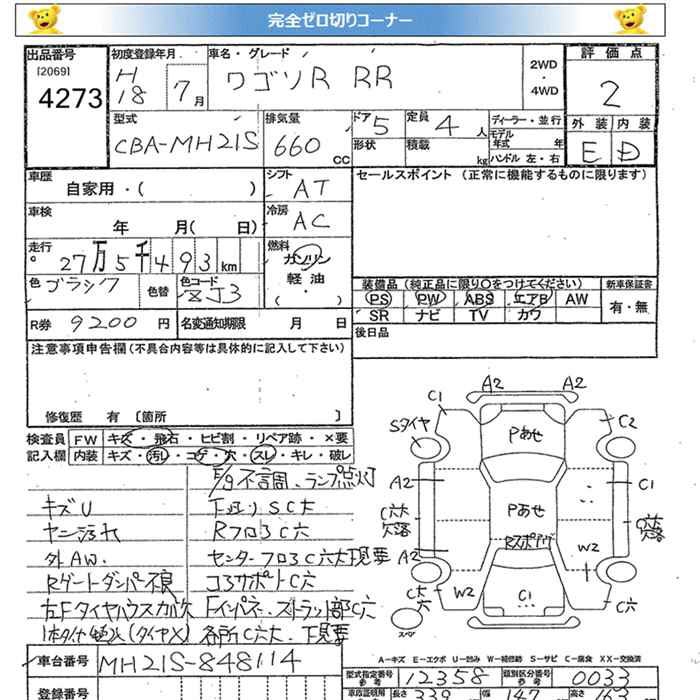 完全ゼロ切りコーナー
出品番号 初度登録年月 車名・グレード 評価点
[2069] 4273 H18 7月 ワゴンR RR 2WD・4WD 2
型式 排気量 ドア 5 定員 4人 ディーラー・並行 外装 内装
CBA-MH21S 660cc 形状 積載 kg モデル年式 年 E D
ハンドル 左・右
車歴 シフト セールスポイント (正常に機能するものに限ります)
自家用・( ) AT
車検 冷房
年 月( 日) AC
走行 燃料
27万5千493km ガソリン
色 ブラック 色替 色コード ZJ3 軽油 装備品(純正品に限り○をつけてください) 新車保証書
( ) PS PW ABS エアB AW 有・無
R券 9200円 名変通知期限 月 日 SR ナビ TV カワ
注意事項申告欄(不具合内容等は具体的に記入して下さい) 後日品
修復歴 有 [箇所 ]
検査員 FW キズ・飛石・ヒビ割・リペア跡・×要
記入欄 内装 キズ・汚レ・コゲ・穴・スレ・キレ・破レ
E/g不調、ランプ点灯
キズU 下廻りSC大
ヤニ汚れ RフロアC穴
外AW. センターフロアC穴大下見要
Rゲートダンパー不良 コアサポートC穴
左FタイヤハウスカバーX Fインパネ、ストラット部C穴
各所C穴大、下見要
A2 A2
C1 C2
Sタイヤ Pあせ
A2 C1
C穴大欠落 Pあせ C穴欠落
A2 Rスポイラー W2
C穴大 W2 C1 C穴
スペア
A-キズ E-エクボ U-凹み W-補修跡 S-サビ C-腐食 XX-交換済
車台番号 MH21S-848114 型式指定番号 参考 12358 類別区分番号 参考 0033
登録番号 長さ 339 幅 147 高さ